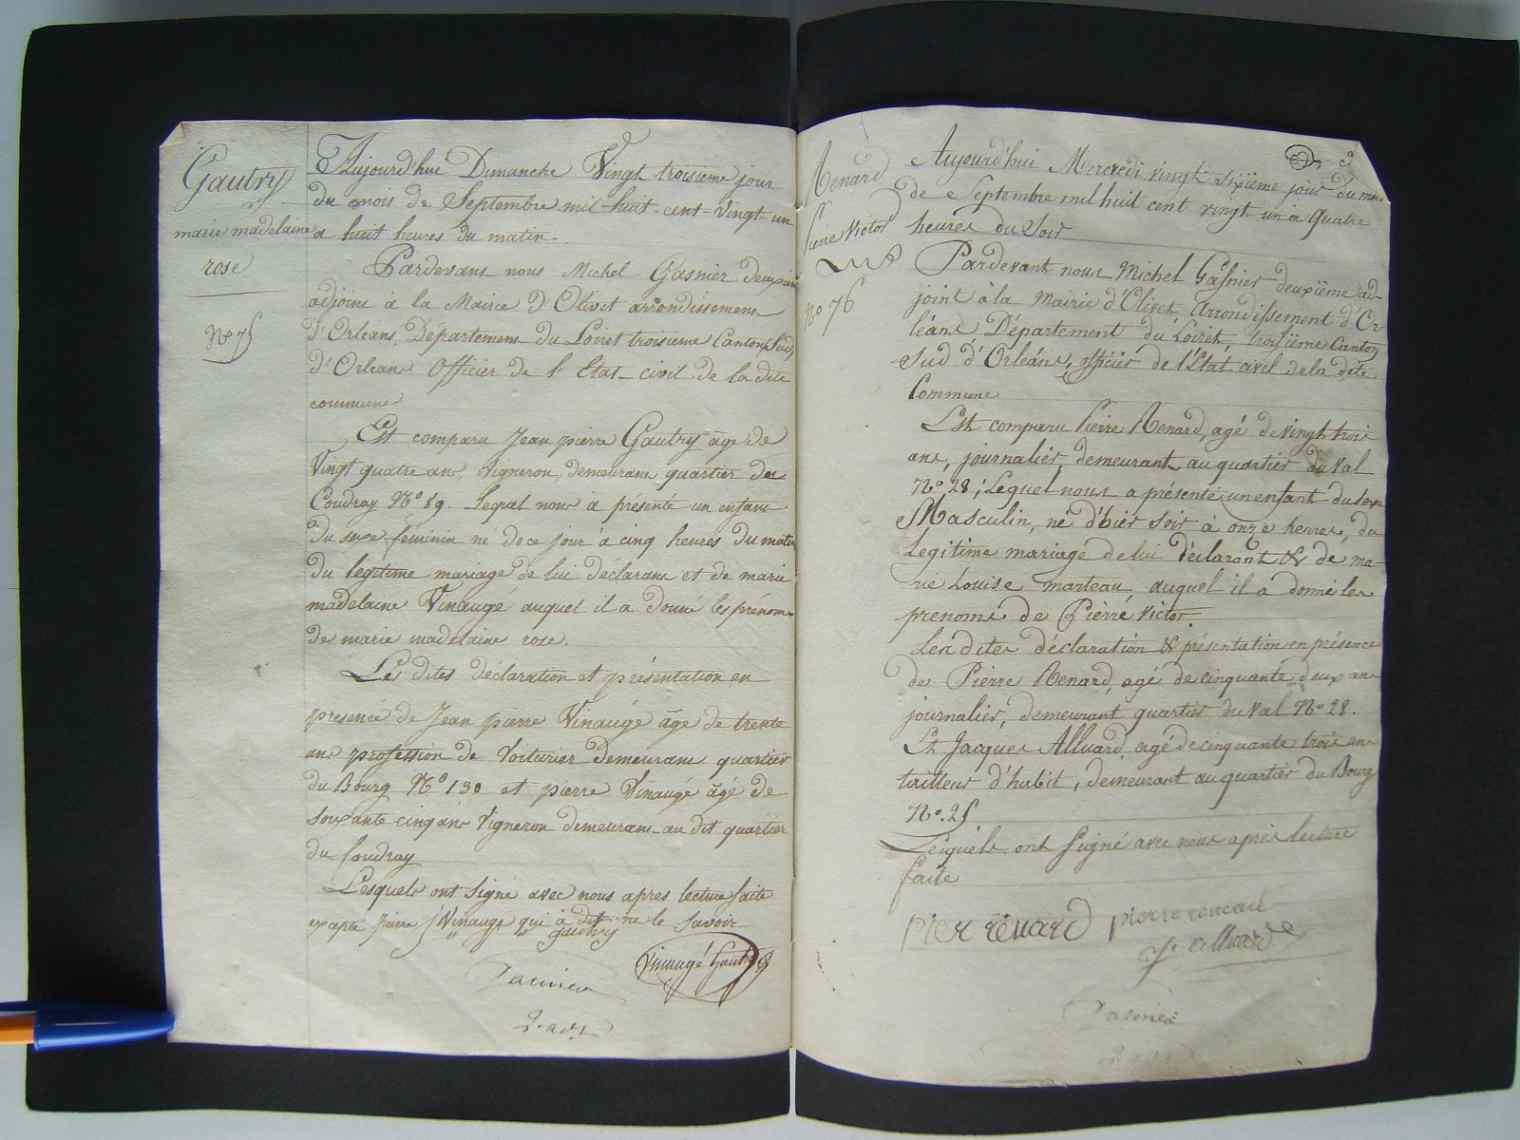 Gautry
marie madelaine
rose
N° 75
Aujourd'hui Dimanche Vingt troisieme jour
du mois de Septembre mil-huit-cent-Vingt-un
a huit heures du matin.
Pardevant nous Michel Gasnier deuxieme
adjoint à la Mairie D'Olivet arrondissement
d'Orleans, Département du Loiret troisieme Canton (Sud)
d'Orleans Officier de l'Etat-civil de la dite
commune
Est comparu Jean pierre Gautry âge de
Vingt quatre ans Vigneron demeurant quartier du
Coudray N° 89. Lequel nous à présenté un enfant
du sexe féminin né de ce jour à cinq heures du matin
du legitime mariage de lui déclarant et de marie
madelaine Vinaugé auquel il a donné les prénoms
de marie madelaine rose.
Les dites déclaration et présentation en
presence de Jean pierre Vinaugé âge de trente
ans profession de Voiturier demeurant quartier
du Bourg N° 130 et pierre Vinaugé âgé de
soixante cinq ans Vigneron demeurant au dit quartier
du Coudray
Lesquels ont signé avec nous apres lecture faite
excepté pierre Vinaugé qui à dit ne le savoir
gautry
Vinaugé Gautry
Gasnier
2e adjt
Renard
Pierre Victor
N° 76
Aujourd'hui Mercredi vingt sixième jour du moi
de Septembre mil huit cent vingt un à quatre
heures du Soir
Pardevant nous Michel Gasnier deuxième ad-
joint à la Mairie d'Olivet, Arrondissement d'Or-
léans Département du Loiret, troisième Canton
Sud d'Orléans, officier de l'état civil de la dite
Commune
Est comparu Pierre Renard, agé de vingt trois
ans, journalier, demeurant au quartier du Val
N° 28; Lequel nous a présenté un enfant du sexe
Masculin, né d'hier soir à onze heures, du
Légitime mariage de lui déclarant & de ma-
rie Louise marteau, auquel il a donné les
prenoms de Pierre Victor.
Les dites déclaration & présentation en présence
de Pierre Renard, agé de cinquante deux ans
journalier, demeurant quartier du Val N° 28.
Et Jacques Alluard, agé de cinquante trois ans
tailleur d'habit, demeurant au quartier du Bourg
N°. 25
Lesquels ont signé avec nous après lecture
faite
Pier renard pierre renard
J. alluard
Gasnier